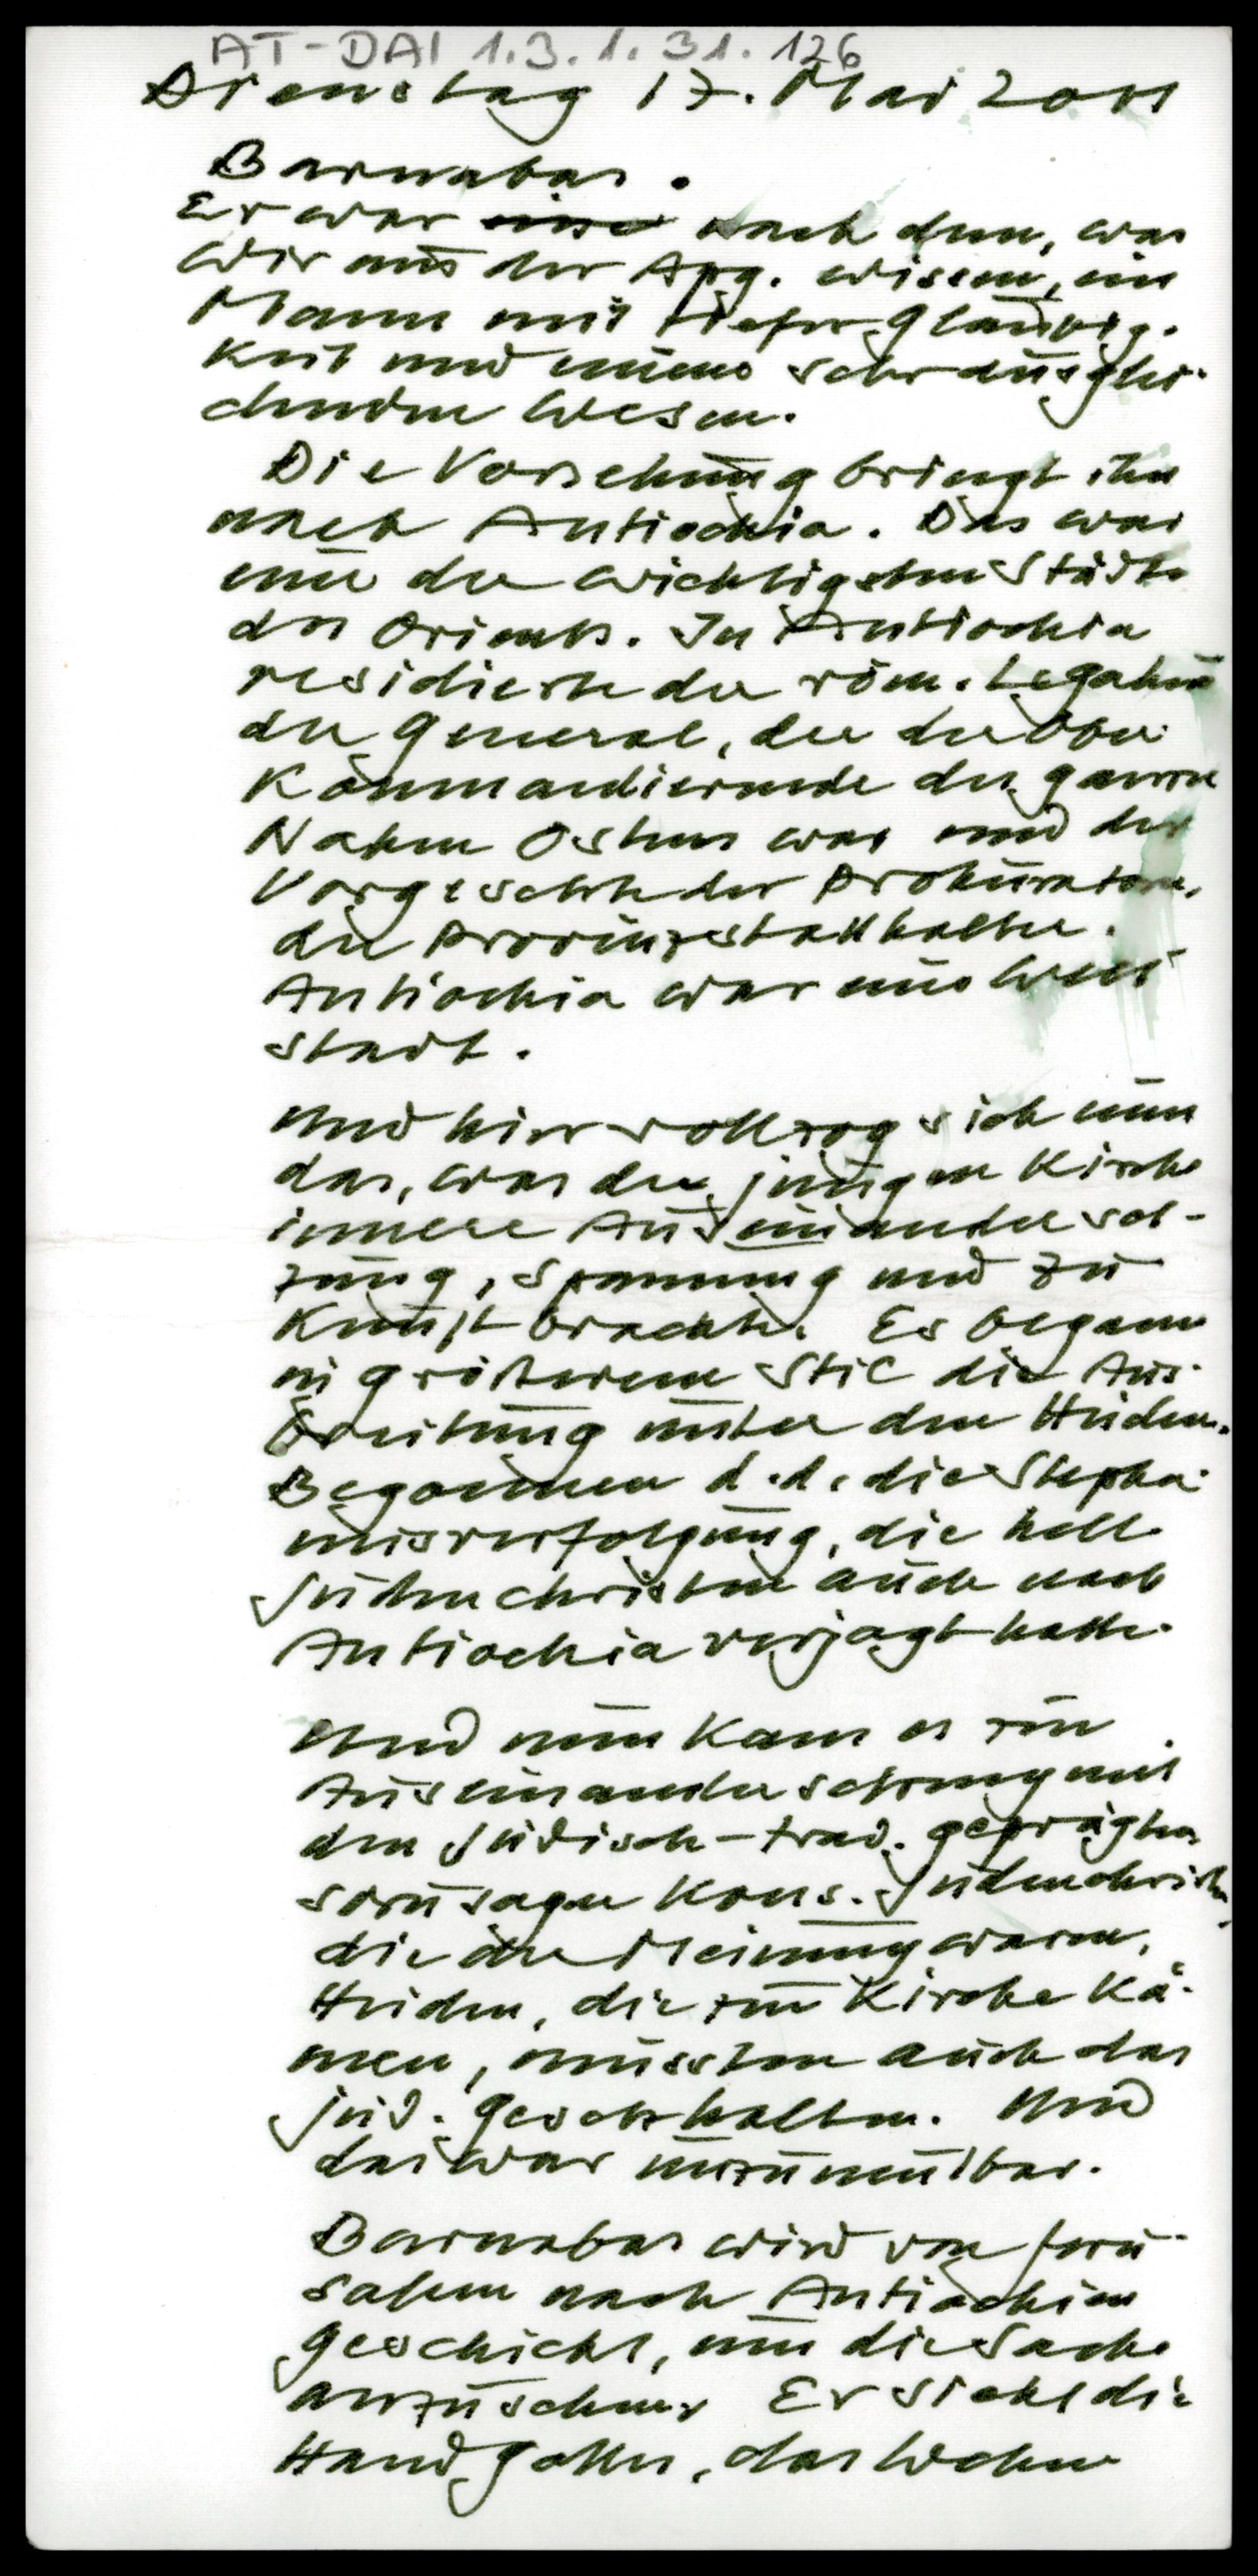 AT-DAI 1.3.1.31.126
Dienstag 17. Mai 2011
Barnabas.
Er war eine nach dem, was
wir aus der Apg. wissen, ein
Mann mit tiefer Gläubig-
keit und eines sehr ausglei-
chenden Wesen.
Die Vorsehung bringt ihn
nach Antiochia. Das war
eine der wichtigsten Städte
des Orients. In Antiochia
residierte der röm. Legat
der General, der der Ober-
kommandierende des ganzen
Nahen Ostens war und der
Vorgesetzte der Prokuratoren,
der Provinzstatthalter.
Antiochia war eine Welt
stadt.
Und hier vollzog sich nun
das, was der jungen Kirche
innere Auseinanderset-
zung, Spannung und Zu
kunft brachte. Es begann
in größerem Stil die Aus-
breitung unter den Heiden.
Begonnen d. d. die Stepha-
nusverfolgung, die hell.
Judenchristen auch nach
Antiochia verjagt hatte.
Und nun kam es zur
Auseinandersetzung mit
den jüdisch-trad. geprägten
sozusagen kons. Judenchristen,
die der Meinung waren,
Heiden, die zur Kirche kä-
men, müssten auch das
jüd. Gesetz halten. Und
das war unzumutbar.
Barnabas wird von Jeru-
salem nach Antiochien
geschickt, um die Sache
anzusehen. Er sieht die
Hand Gottes, das Wehen